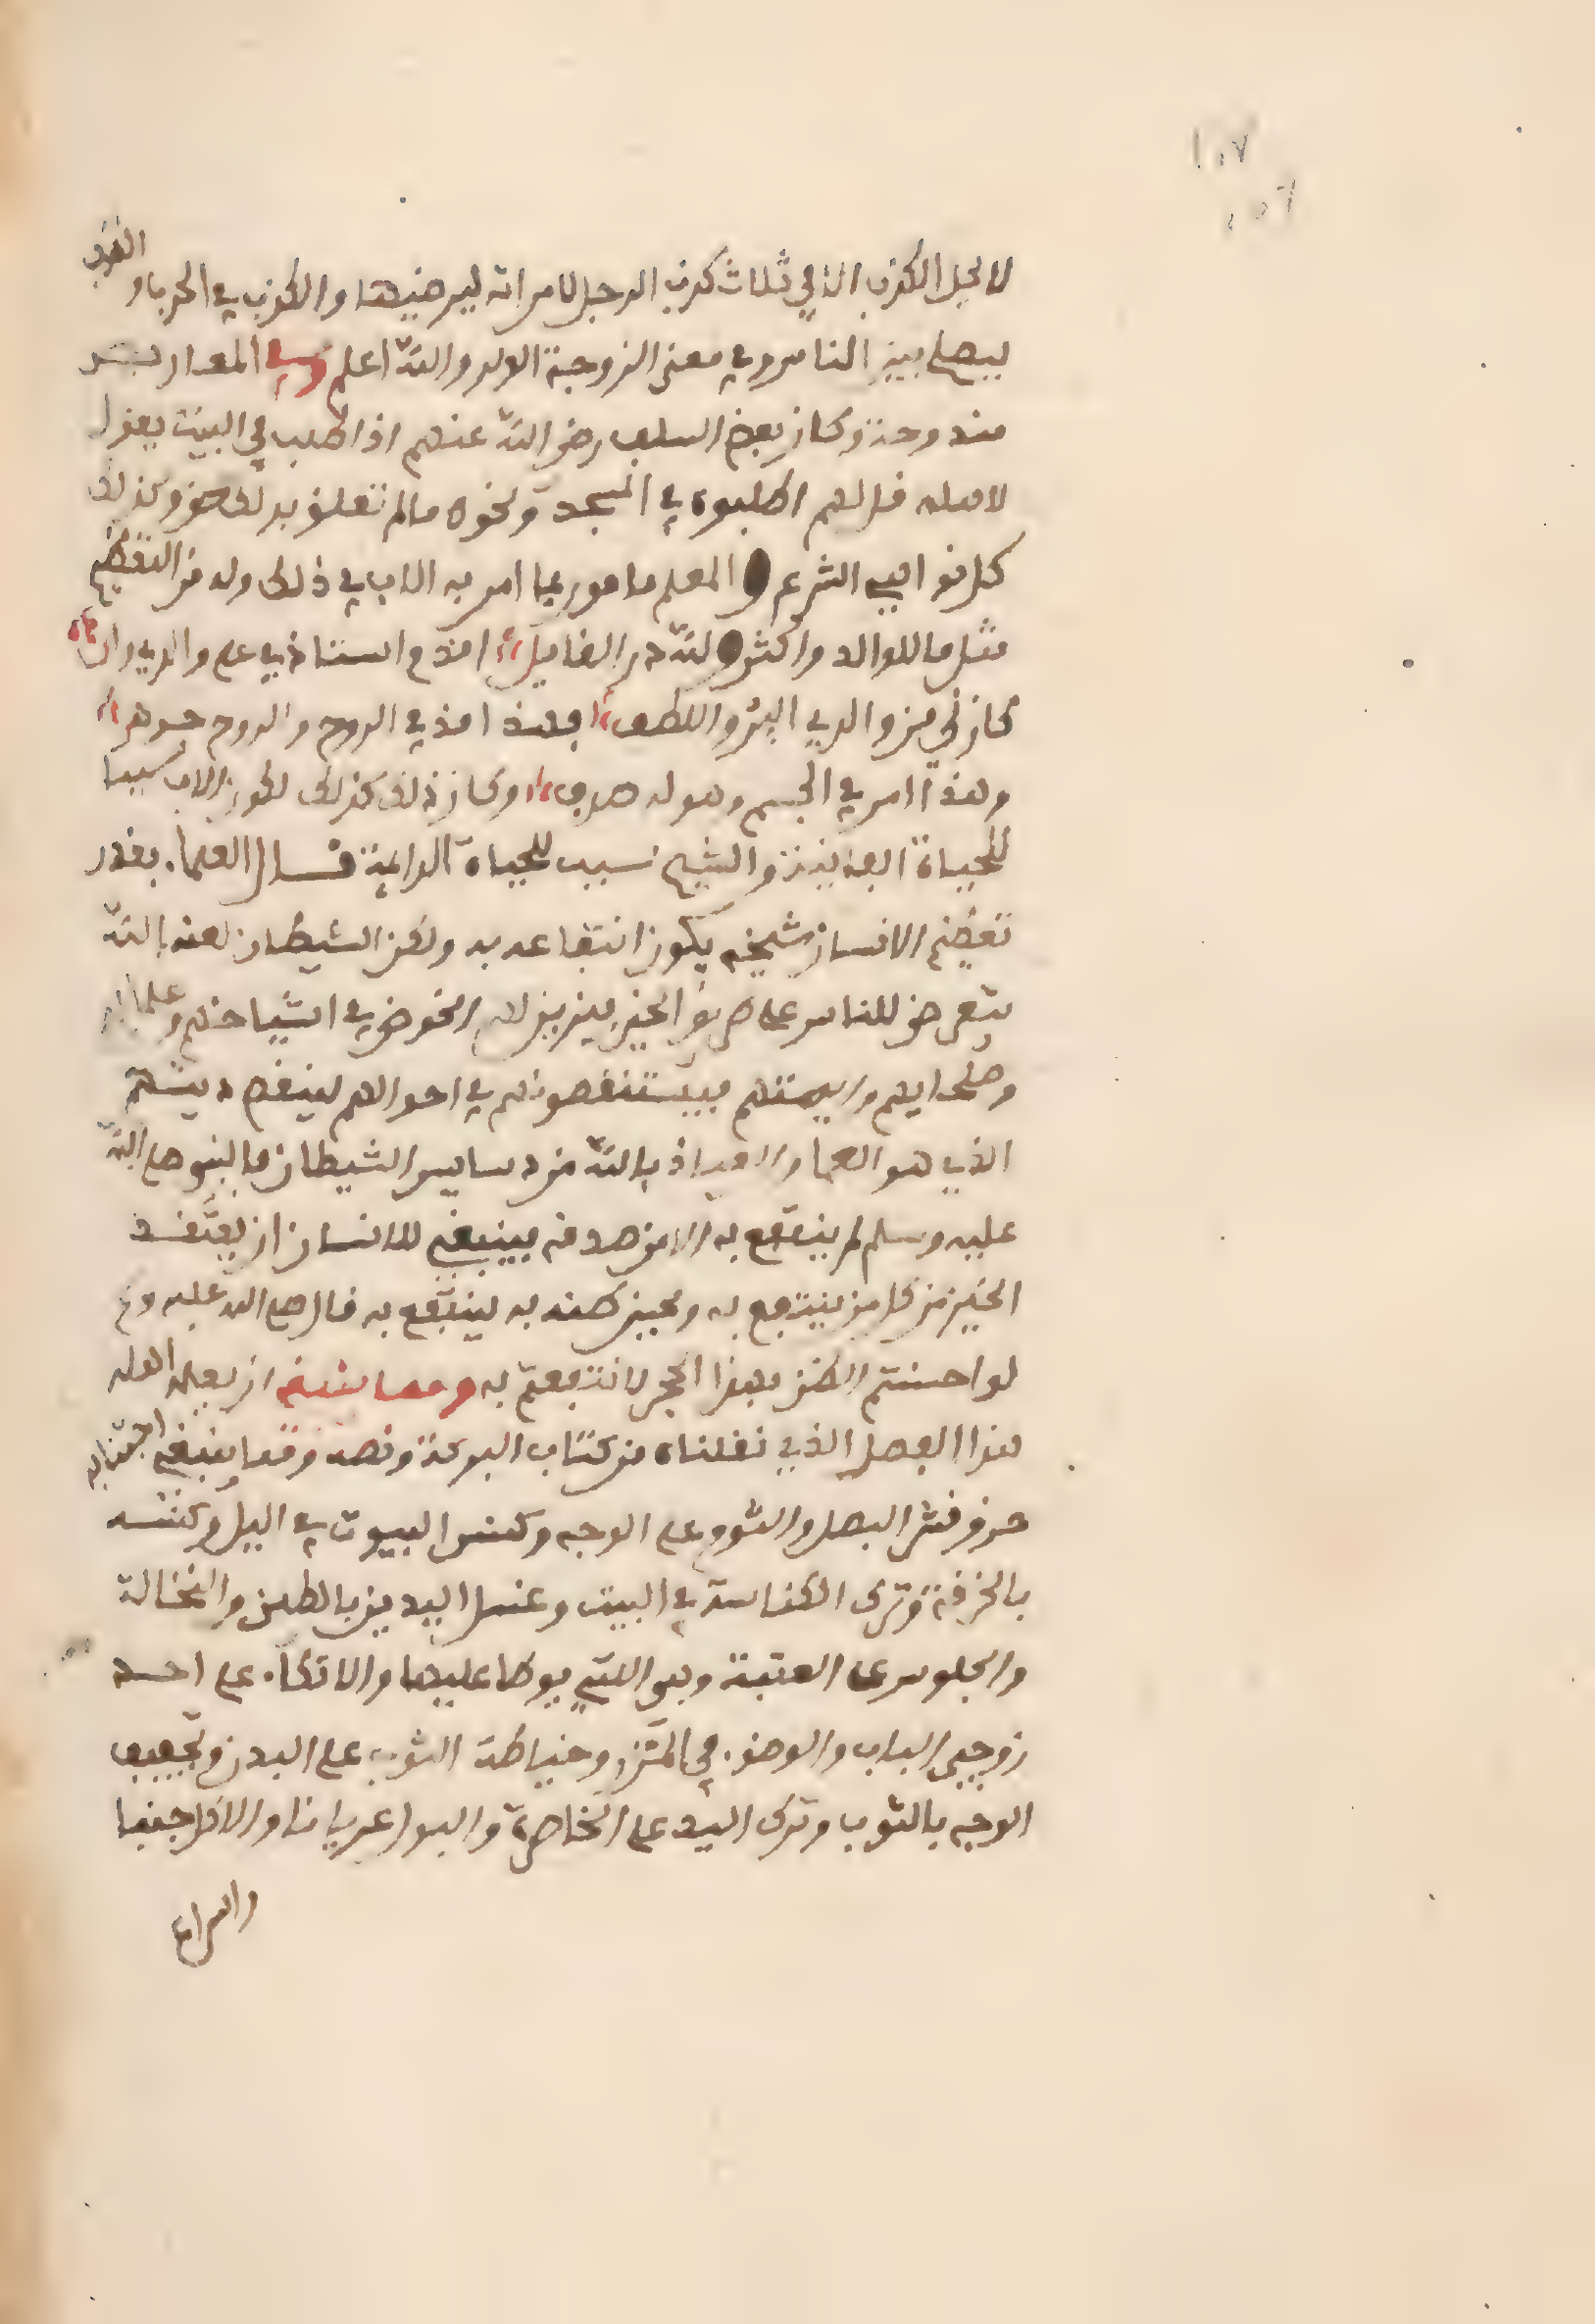 ١٠٧
١٠٦
لا يحل الكذب الا في ثلاث كذب الرجل لامراته ليرضيها والكذب في الحرب او الكذب
ليصلح بين الناس وفي معنى الزوجة الولد والله اعلم وفي المعاريض
مندوحة وكان بعض السلف رضي الله عنهم اذا طلب في البيت يقول
لاهله قل لهم اطلبوه في المسجد ونحوه ما لم تعلق بذلك حق وكذلك
كل نواهي الشرع والمعلم مامور بما امر به الاب في ذلك وله من التعظيم
مثل ما للوالد واكثر ولله در القايل اقدم استاذي على والدي وان
كان لي من والدي البر واللطف فهذا مذ في الروح والروح جوهر
وهذا امر في الجسم وهو له صدف وكان ذلك كذلك لكون الاب سببا
للحياة الفانية والشيخ سبب للحياة الدايمة قال العلماء بقدر
تعظيم الانسان شيخه يكون انتفاعه به ولكن الشيطان لعنه الله
يتعرض للناس على طريق الخير يزين لهم الخوض في اشياخهم وعلمائهم
وصلحايهم وايمتهم فيستنقصونهم في احوالهم لينقص دينهم
الذي هو العماد والعياذ بالله من دسايس الشيطان فالنبي صلى الله
عليه وسلم لم ينتفع به الا من صدقه فينبغي للانسان ان يعتقد
الخير من كل من ينتفع به ويحسن ظنه به لينتفع به قال صلى الله عليه وسلم
لو احسنتم الظن بهذا الحجر لانتفعتم به ومما ينبغي ان يعلمه الولد
هذا الفصل الذي نقلناه من كتاب البركة ونصه ومما ينبغي اجتنابه
حرق قشر البصل والثوم على الوجه وكنس البيوت في اليل وكنسه
بالخرقة وترك الكناسة في البيت وغسل اليدين بالطين والنخالة
والجلوس على العتبة وهي التي يوطا عليها والاتكاء على احد
زوجي الباب والوضوء في المتبرز وخياطة الثوب على البدن وتجفيف
الوجه بالثوب وترك اليد على الخاصرة والبول عريانا والاكل جنبا